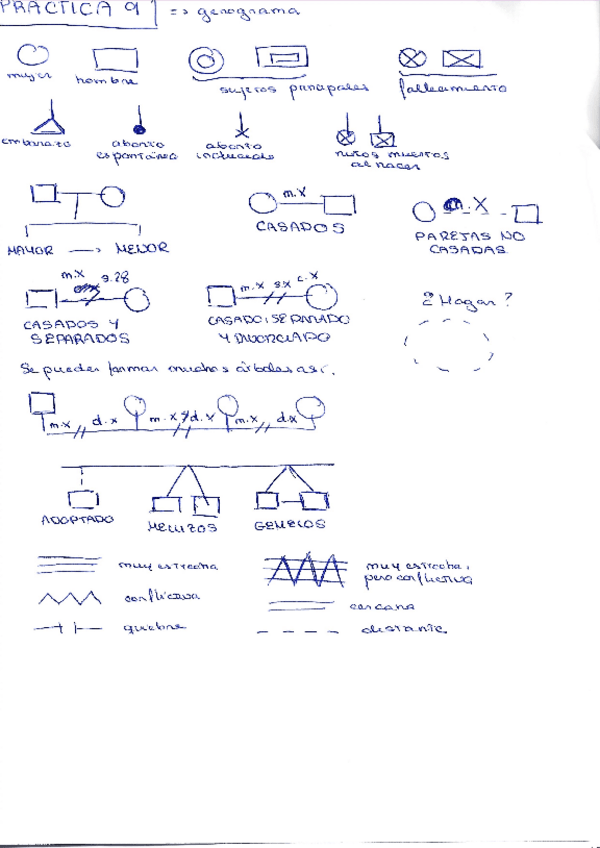 PRACTICA 9 => genograma
mujer hombre sujetos principales fallecimiento
embarazo aborto espontáneo aborto inducido niños muertos al nacer
m.x
CASADOS
m.x
PAREJAS NO CASADAS
MAYOR → MENOR
m.x s.28
CASADOS Y SEPARADOS
m.x s.x c.x
CASADO, SEPARADO Y DIVORCIADO
¿Hogar?
Se pueden formar muchos árboles así.
m.x d.x m.x d.x m.x d.x
ADOPTADO MELLIZOS GEMELOS
muy estrecha muy estrecha, pero conflictiva
conflictiva cercana
quiebre distante